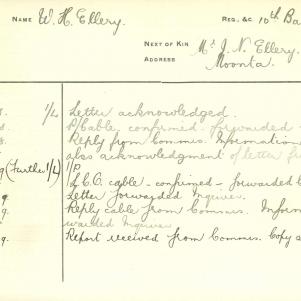 NAME W. H. Ellery. REG. &C 10th Ba
NEXT OF KIN Mr J. N. Ellery.
ADDRESS Moonta.
s. 1/L Letter acknowledged.
s. P/Cable confirmed. Forwarded
s. Reply from Commrs. Information
also acknowledgment of letter
g (Further 1/L) 1/P
L.C.O. cable - confirmed - forwarded t
g. Letter forwarded Inquirer.
g. Reply cable from Commrs. Inform
warded Inquirer
g. Report received from Commrs. Copy